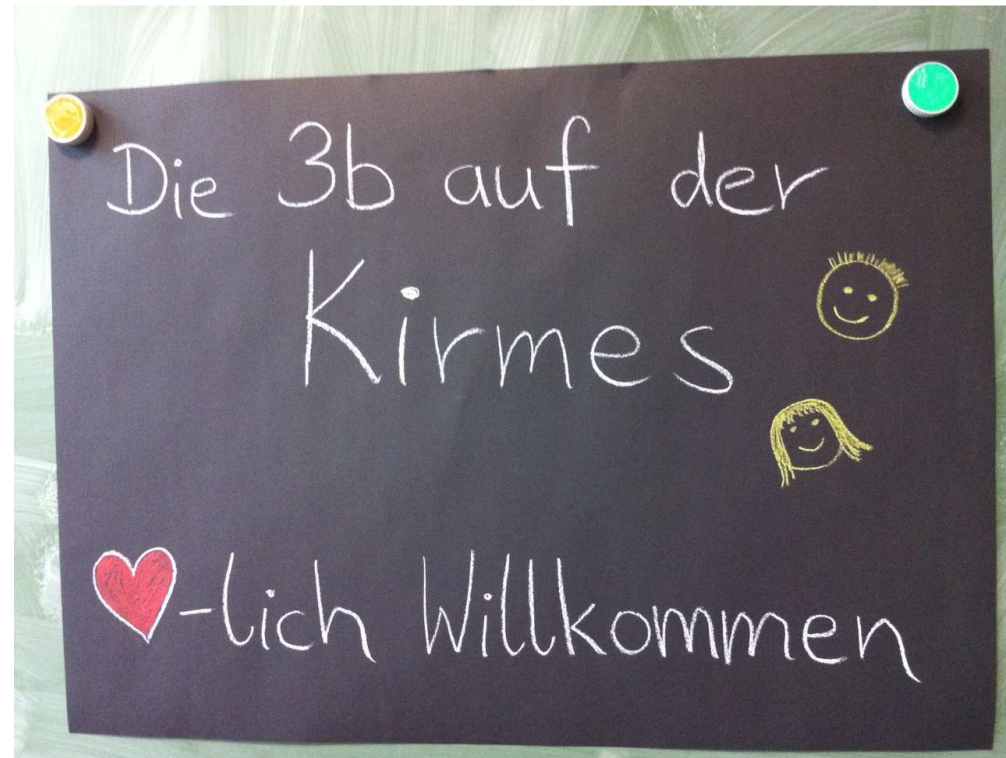 Die 3b auf der
Kirmes
-lich Willkommen